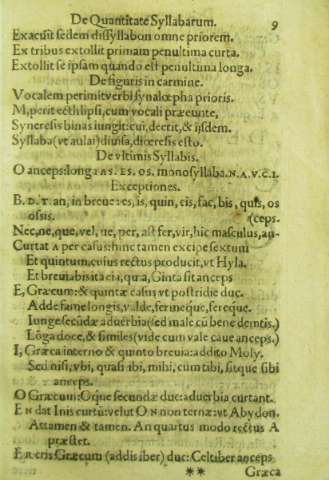 De Quantitate Syllabarum. 9
Exacuit sedem dissyllabon omne priorem.
Ex tribus extollit primam penultima curta.
Extollit se ipsam quando est penultima longa.
De figuris in carmine.
Vocalem perimit verbi synalœpha prioris.
M, perit ecthlipsi, cum vocali præeunte,
Syneresis binas iungit: cui, deerit, & ijsdem.
Syllaba (vt aulai) diuisa, diæresis esto.
De vltimis Syllabis.
O anceps: longa AS. ES. OS. monosyllaba. N. A. V. C. I.
Exceptiones.
B. D. T. an, in breue: es, is, quin, cis, fac, bis, quis, os
ossis. (ceps.
Nec, ne, que, vel, ue, per, ast fer, vir, hic masculus, an-
Curtat A per casus: hinc tamen excipe sextum
Et quintum, cuius rectus producit, vt Hyla.
Et breuiabis ita eia, quia, Ginta sit anceps
E, Græcum: & quintæ casus vt postridie duc.
Adde fame longis, valde, ferme que, fere que.
Iunge secūdæ aduerbia (sed male cū bene demtis.)
Lōga doce, & similes (vide cum vale caue anceps.)
I, Græca in terno & quinto breuia: addito Moly,
Sed nisi, vbi, quasi ibi, mihi, cum tibi, sitque sibi
anceps.
O Græcum: Oque secundæ duc: aduerbia curtant.
EN dat Inis curtū: velut ON non ternæ: vt Abydon.
Attamen & tamen. An quartus modo rectus A
præstet.
ER eris Græcum (addis iber) duc: Celtiber anceps
** Græca